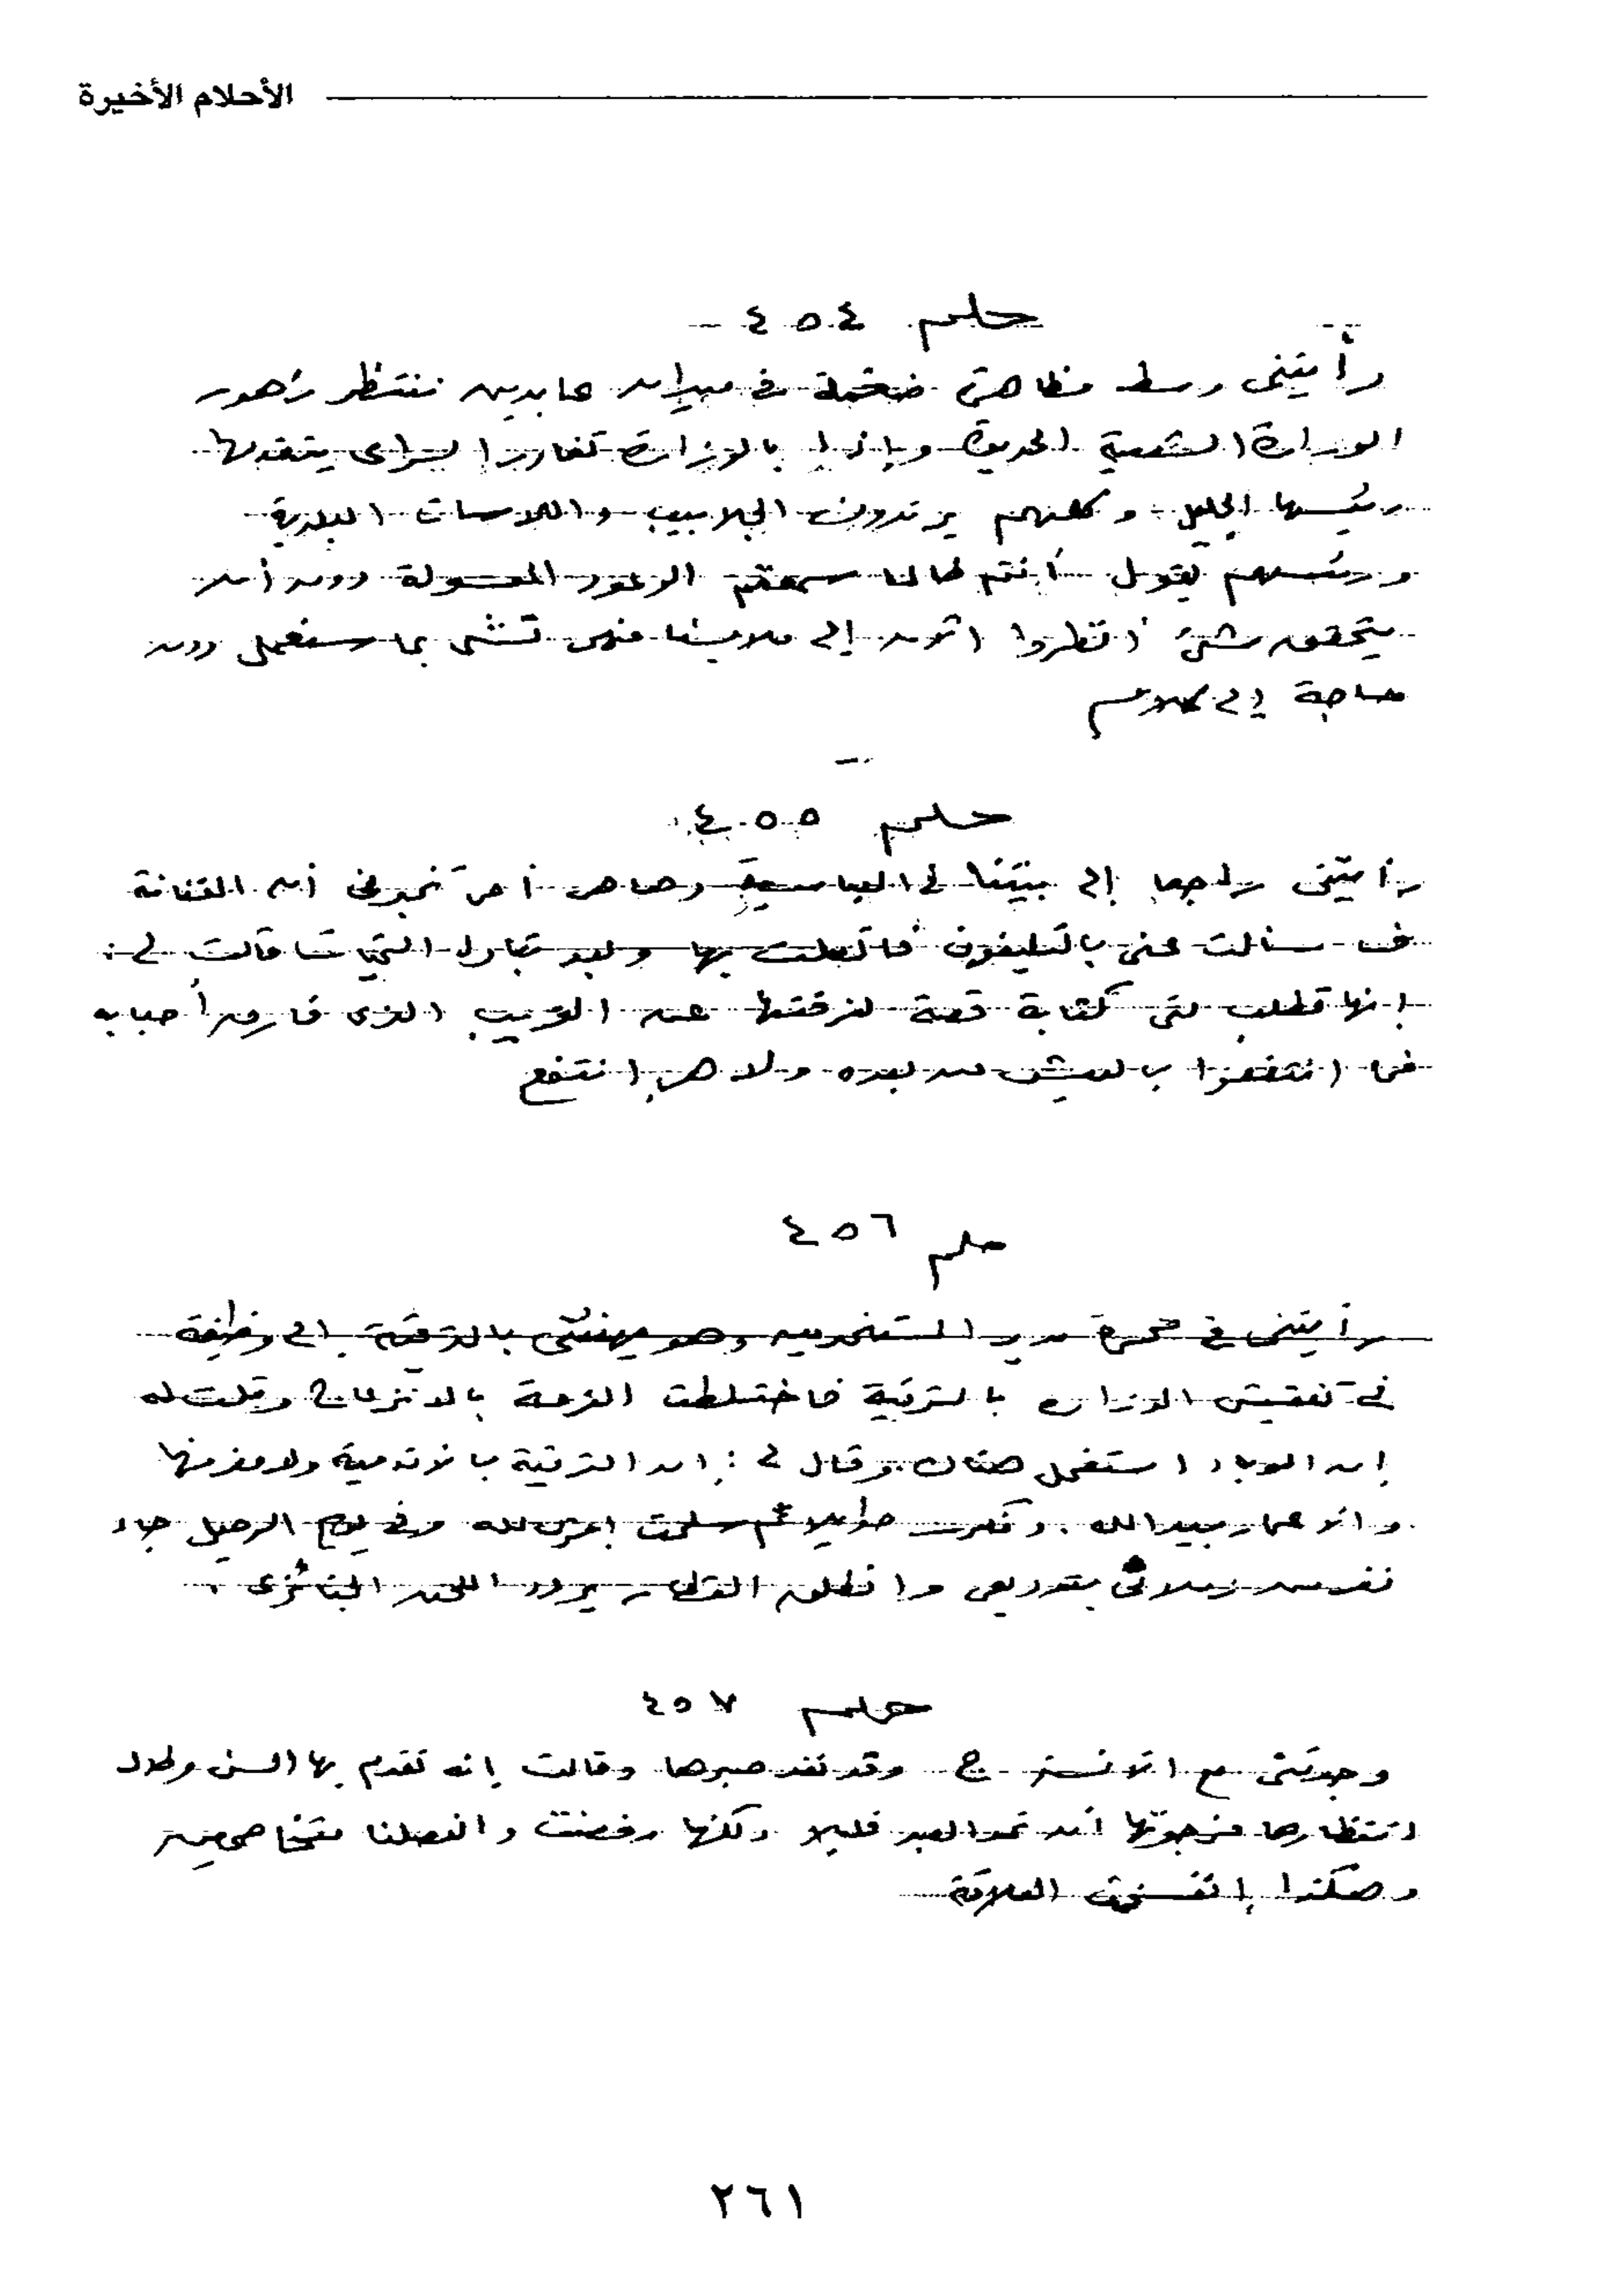 الأحلام الأخيرة
حلم ٤٥٤
رأيتنى وسط مظاهرة ضخمة فى ميدان عابدين ننتظر ظهور
الوزارة الشعبية الجديدة وإذا بالوزارة تغادر السراى يتقدمها
رئيسها الجليل وكلهم يرتدون الجلاليب واللاسات البلدية
ورئيسهم يقول أنتم طالما سمعتم الوعود المعسولة دون أن
يتحقق شئ انظروا الآن إلى ملابسنا فهى تشى بما سنعمل دون
حاجة إلى كلام
حلم ٤٥٥
رأيتنى راجعا إلى بيتنا فى العباسية وصاهر أمى تخبرنى أن الفنانة
ف سألت عنى بالتليفون فاتصلت بها وبعد تبادل التحيات قالت لى:
إنها تطلب منى كتابة قصة لفرقتها عن الحبيب الذى فارق أحبابه
فما انتفعوا بالعيش من بعده ولا هو انتفع
حلم ٤٥٦
رأيتنى فى حجرة مدير المستخدمين وهو يهنئنى بالترقية إلى وظيفة
فى تفتيش الوزارة بالترقية فاختلطت الفرحة بالانزعاج وقلت له
إن الوباء استفحل هناك. وقال لى: إن الترقية بالأقدمية ولا مفر منها
والأعمار بيد الله. وفكرت طويلا ثم سلمت أمرى لله وفى يوم الرحيل جاء
نفر من زملائى بتوديعى وانطلق القطار يردد اللحن الجنائزى.
حلم ٤٥٧
وجدتنى مع الآنسة ج وقد نفد صبرها وقالت إنه تقدم بها السن وطال
انتظارها فرجوتها أن تمد الصبر قليلا ولكنها رفضت وانفصلنا متخاصمين
وهكذا انفسخت العلاقة
٢٦١